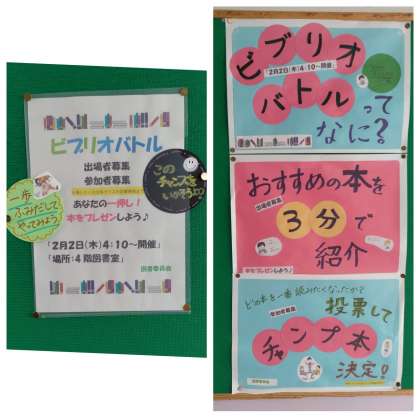 ビブリオバトル
出場者募集
参加者募集
あなたの一押し!
本をプレゼンしよう♪
「2月2日(木)4:10~開催」
「場所:4階図書室」
図書委員会
一歩
ふみだして
やってみよう
この
チャンスを
いかそう!!
ビブリオ
「2月2日(木)4:10~開催」
バトルって
なに?
おすすめの本を
出場者募集
3分で
紹介
本をプレゼンしよう♪
どの本を一番読みたくなったかで
参加者募集
投票して
チャンプ本
決定!
図書委員会